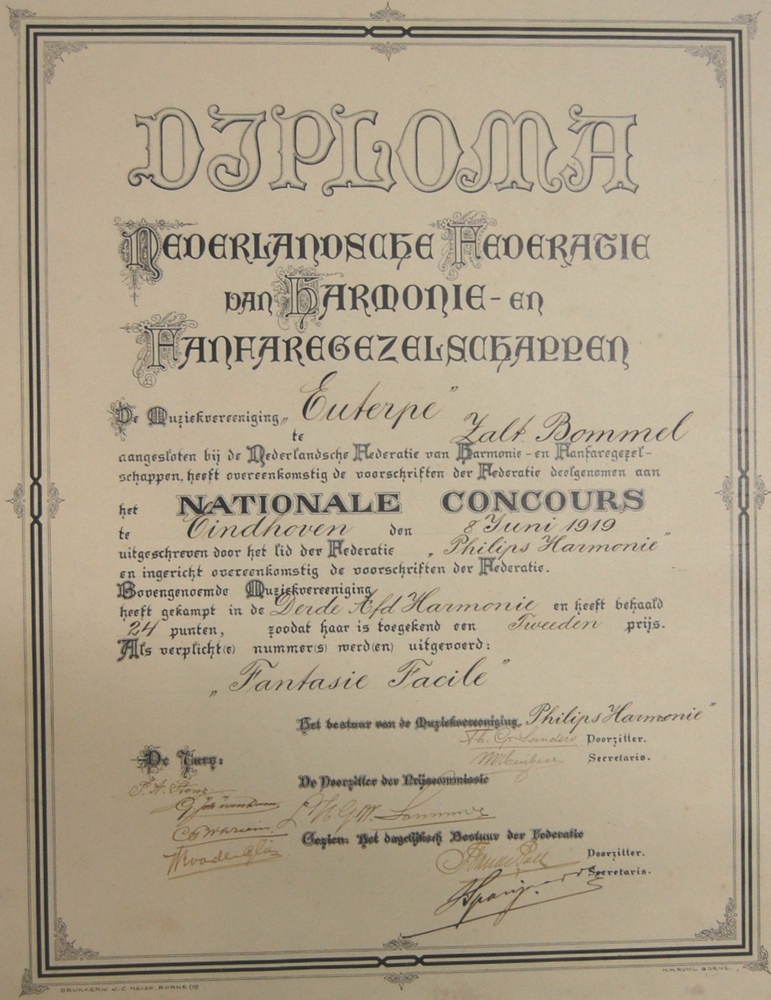 DIPLOMA
NEDERLANDSCHE FEDERATIE
VAN HARMONIE- EN
FANFAREGEZELSCHAPPEN
De Muziekvereeniging „Euterpe”
te Zalt Bommel
aangesloten bij de Nederlandsche Federatie van Harmonie- en Fanfaregezel-
schappen, heeft overeenkomstig de voorschriften der Federatie deelgenomen aan
het NATIONALE CONCOURS
te Eindhoven den 8 Juni 1919
uitgeschreven door het lid der Federatie „Philips Harmonie”
en ingericht overeenkomstig de voorschriften der Federatie.
Bovengenoemde Muziekvereeniging
heeft gekampt in de Derde Afd Harmonie en heeft behaald
24 punten, zoodat haar is toegekend een Tweeden prijs.
Als verplicht(e) nummer(s) werd(en) uitgevoerd:
„Fantasie Facile”
Het bestuur van de Muziekvereeniging „Philips Harmonie”
Voorzitter.
Secretaris.
De Jury:
De Voorzitter der Prijscommissie
Gezien: Het dagelijksch Bestuur der Federatie
Voorzitter.
Secretaris.
DRUKKERIJ J.C. HEIZE, BORNE (O)
H.H. RUHL BORNE.